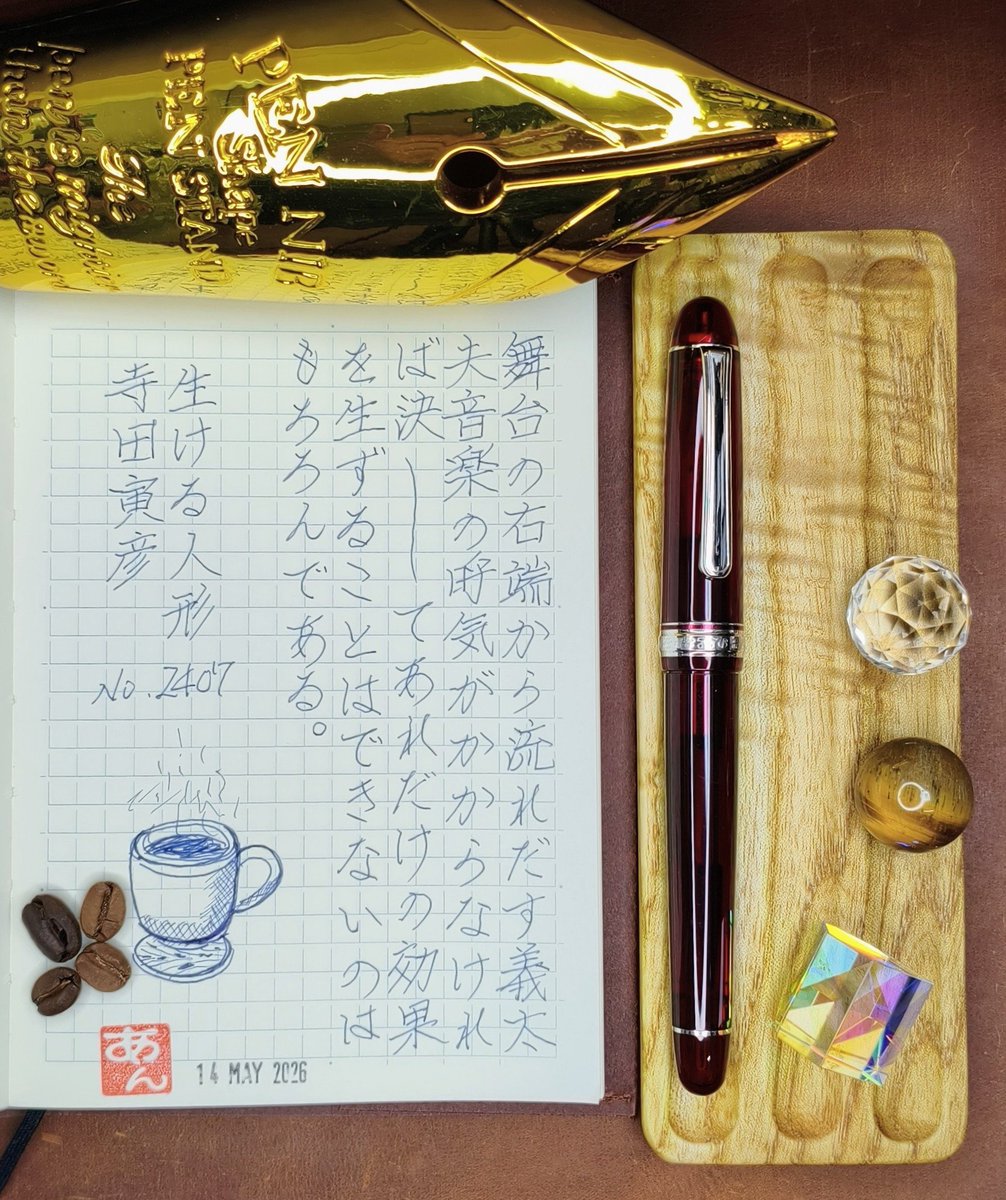 PEN NIB
Shape
PEN STAND
The
pen is mightier
than the
舞台の右端から流れだす義太
夫音楽の呼気がかからなけれ
ば決してあれだけの効果
を生ずることはできないのは
もちろんである。
生ける人形
寺田寅彦
No.2407
あん
14 MAY 2026